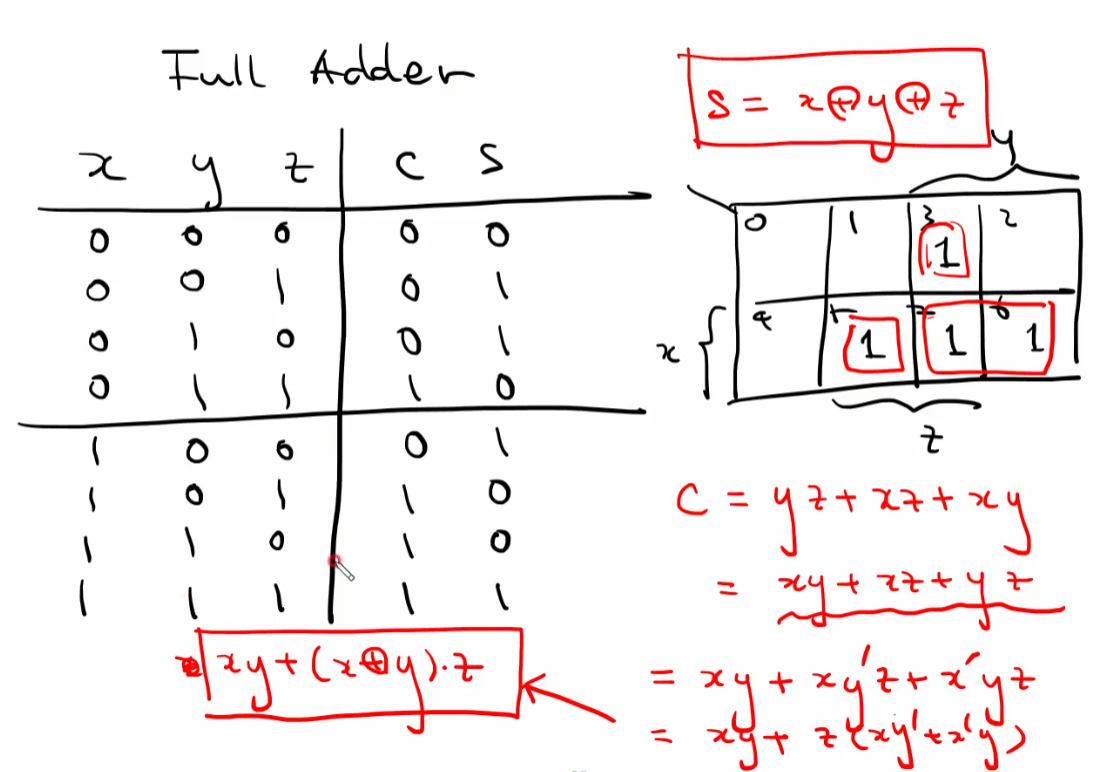 Full Adder
x y z C S
0 0 0 0 0
0 0 1 0 1
0 1 0 0 1
0 1 1 1 0
1 0 0 0 1
1 0 1 1 0
1 1 0 1 0
1 1 1 1 1
S = x⊕y⊕z
y
0 1 3 2
1
x
4 5 7 6
1 1 1
z
C = yz + xz + xy
= xy + xz + yz
= xy + xy'z + x'yz
= xy + z(xy' + x'y)
xy + (x⊕y)·z